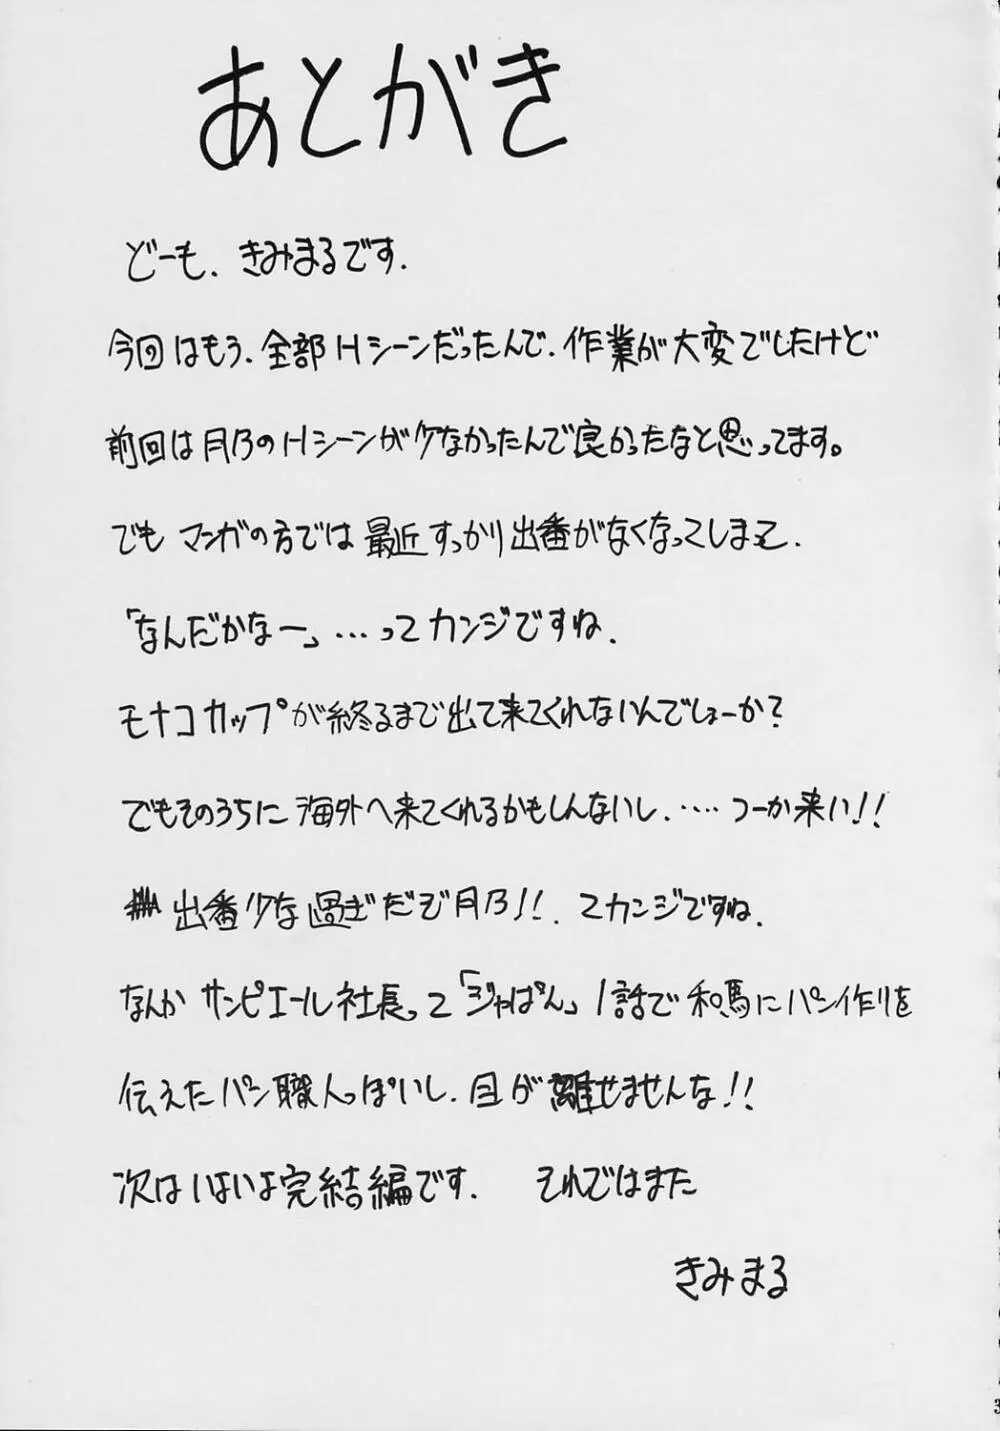 あとがき
どーも、きみまるです.
今回はもう、全部Hシーンだったんで、作業が大変でしたけど
前回は月乃のHシーンが少なかったんで良かったなと思ってます。
でも マンガの方では最近すっかり出番がなくなってしまって、
「なんだかなー」…ってカンジですね.
モナコカップが終るまで出て来てくれないんでしょーか?
でもそのうちに 海外へ来てくれるかもしんないし、‥‥つーか来い!!
出番少な過ぎだぞ月乃!!. てカンジですね.
なんか サンピエール社長って「ジャぱん」1話で和馬にパン作りを
伝えたパン職人っぽいし、目が離せませんな!!
次はいよいよ完結編です. それではまた
きみまる